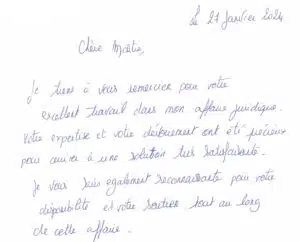 Le 27 Janvier 2024
Chère Maître,
Je tiens à vous remercier pour votre
excellent travail dans mon affaire juridique.
Votre expertise et votre dévouement ont été précieux
pour arriver à une solution très satisfaisante.
Je vous suis également reconnaissante pour votre
disponibilité et votre soutien tout au long
de cette affaire.